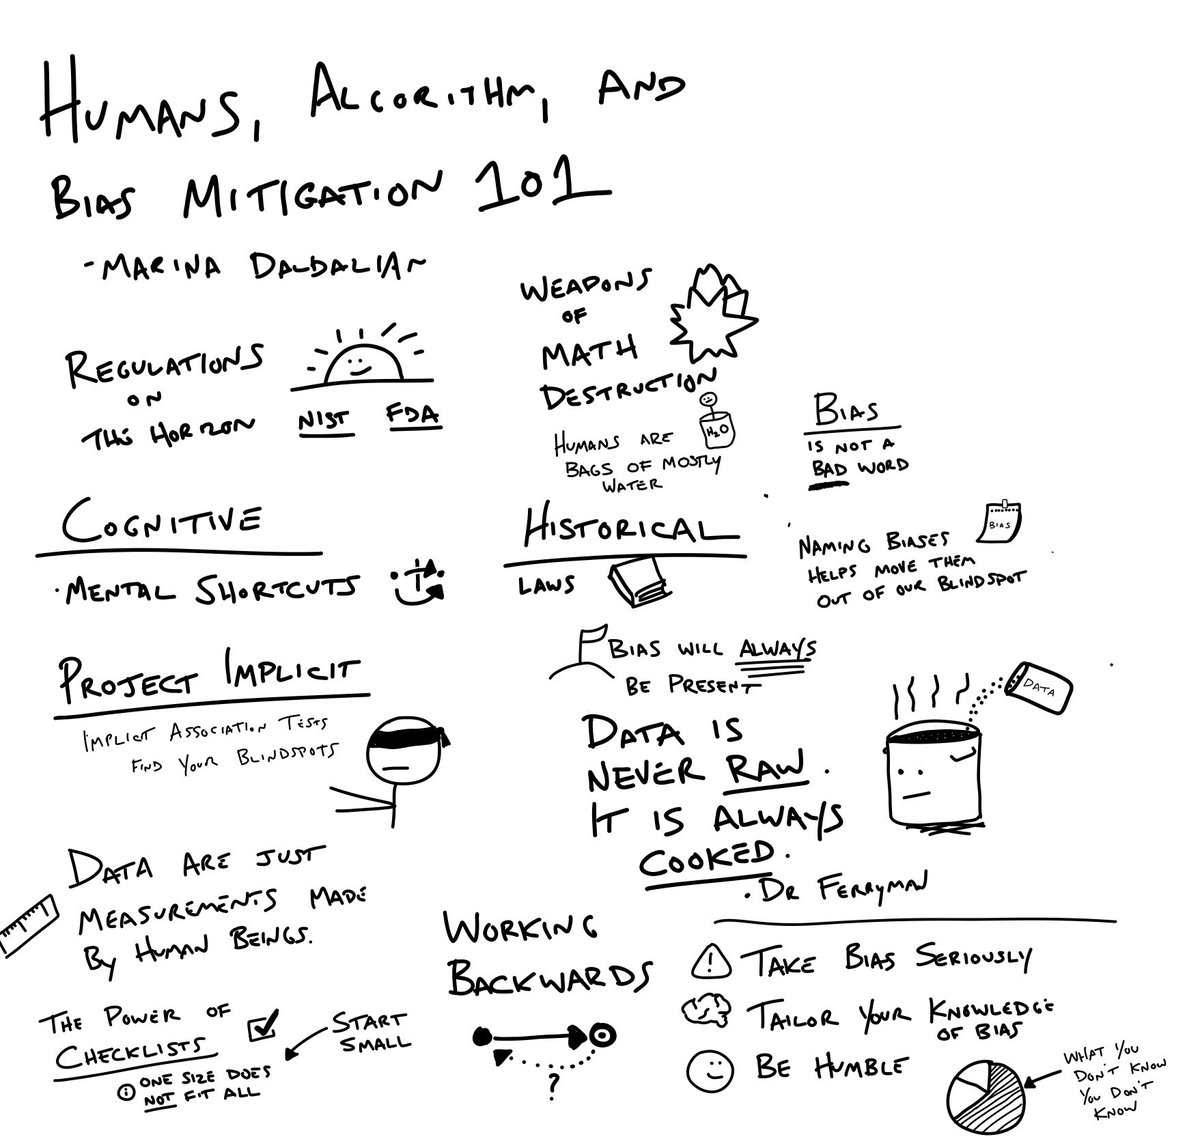 HUMANS, ALGORITHM, AND
BIAS MITIGATION 101
- MARINA DALDALIAN
REGULATIONS
ON
THE HORIZON
NIST FDA
WEAPONS
OF
MATH
DESTRUCTION
HUMANS ARE
BAGS OF MOSTLY
WATER
H2O
BIAS
IS NOT A
BAD WORD
COGNITIVE
· MENTAL SHORTCUTS
HISTORICAL
LAWS
NAMING BIASES
HELPS MOVE THEM
OUT OF OUR BLINDSPOT
BIAS
PROJECT IMPLICIT
IMPLICIT ASSOCIATION TESTS
FIND YOUR BLINDSPOTS
BIAS WILL ALWAYS
BE PRESENT
DATA IS
NEVER RAW.
IT IS ALWAYS
COOKED.
· DR FERRYMAN
DATA
DATA ARE JUST
MEASUREMENTS MADE
BY HUMAN BEINGS.
THE POWER OF
CHECKLISTS
START
SMALL
ONE SIZE DOES
NOT FIT ALL
WORKING
BACKWARDS
?
! TAKE BIAS SERIOUSLY
TAILOR YOUR KNOWLEDGE
OF BIAS
BE HUMBLE
WHAT YOU
DON'T KNOW
YOU DON'T
KNOW